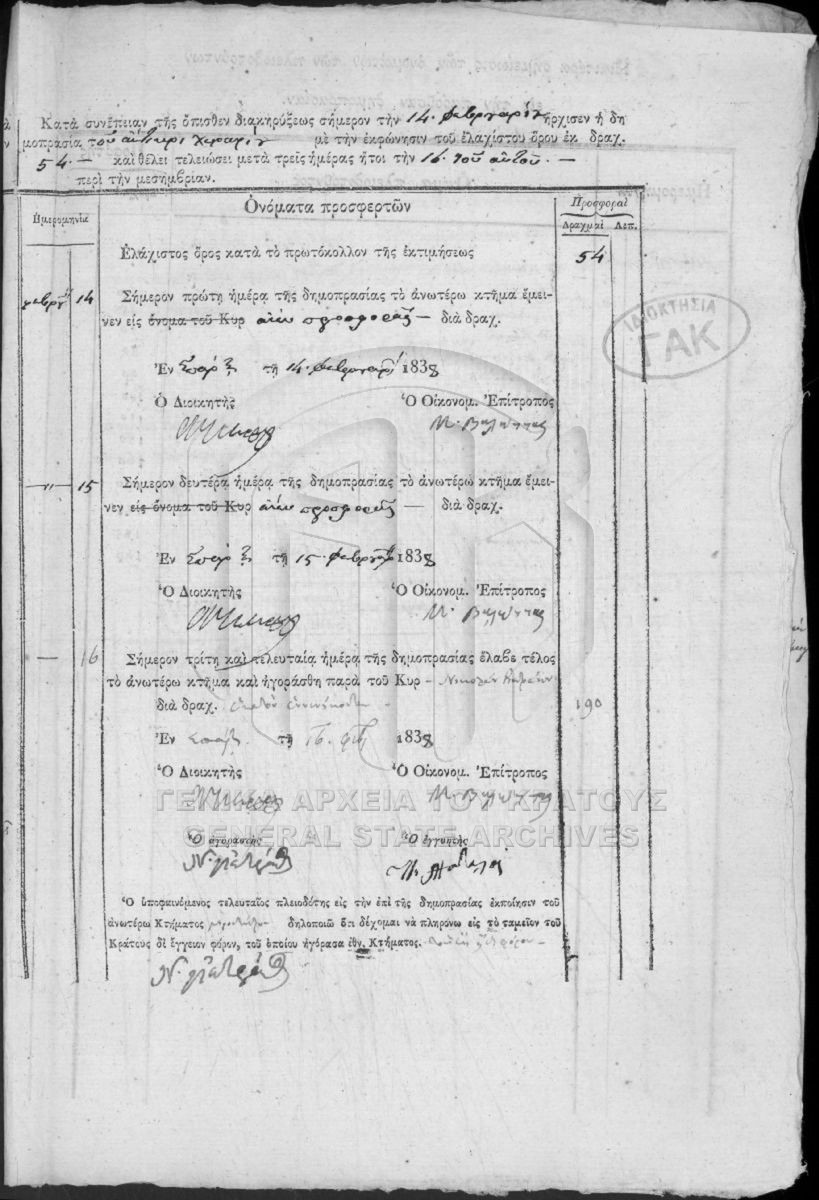 Κατὰ συνέπειαν τῆς ὄπισθεν διακηρύξεως σήμερον τὴν 14. φεβρουαρίου ἤρχισεν ἡ δη
μοπρασία τοῦ μὲ τὴν ἐκφώνησιν τοῦ ἐλαχίστου ὅρου ἐκ δραχ.
54. — καὶ θέλει τελειώσει μετὰ τρεῖς ἡμέρας ἤτοι τὴν 16. τοῦ αὐτοῦ. —
περὶ τὴν μεσημβρίαν.
Ἡμερομηνία
Ὀνόματα προσφερτῶν
Προσφοραὶ
Δραχμαὶ Λεπ.
Ἐλάχιστος ὅρος κατὰ τὸ πρωτόκολλον τῆς ἐκτιμήσεως 54
φεβρ 14 Σήμερον πρώτῃ ἡμέρᾳ τῆς δημοπρασίας τὸ ἀνωτέρω κτῆμα ἔμει-
νεν εἰς ὄνομα τοῦ Κυρ ἄνευ προσφορᾶς — διὰ δραχ.
ΙΔΙΟΚΤΗΣΙΑ
ΓΑΚ
Ἐν τῇ 14. φεβρουαρ 1838
Ὁ Διοικητὴς Ὁ Οἰκονομ. Ἐπίτροπος
—〃— 15 Σήμερον δευτέρᾳ ἡμέρᾳ τῆς δημοπρασίας τὸ ἀνωτέρω κτῆμα ἔμει-
νεν εἰς ὄνομα τοῦ Κυρ ἄνευ προσφορᾶς — διὰ δραχ.
Ἐν τῇ 15. φεβρ 1838
Ὁ Διοικητὴς Ὁ Οἰκονομ. Ἐπίτροπος
— 16 Σήμερον τρίτῃ καὶ τελευταίᾳ ἡμέρᾳ τῆς δημοπρασίας ἔλαβε τέλος
τὸ ἀνωτέρω κτῆμα καὶ ἠγοράσθη παρὰ τοῦ Κυρ
διὰ δραχ. ἑκατὸν ἐννενήκοντα 190
Ἐν τῇ 16. φεβ 1838
Ὁ Διοικητὴς Ὁ Οἰκονομ. Ἐπίτροπος
ΓΕΝΙΚΑ ΑΡΧΕΙΑ ΤΟΥ ΚΡΑΤΟΥΣ
GENERAL STATE ARCHIVES
Ὁ ἀγοραστὴς Ὁ ἐγγυητὴς
Ὁ ὑποφαινόμενος τελευταῖος πλειοδότης εἰς τὴν ἐπὶ τῆς δημοπρασίας ἐκποίησιν τοῦ
ἀνωτέρω Κτήματος δηλοποιῶ ὅτι δέχομαι νὰ πληρόνω εἰς τὸ ταμεῖον τοῦ
Κράτους δι' ἔγγειον φόρον, τοῦ ὁποίου ἠγόρασα ἐθν. Κτήματος.